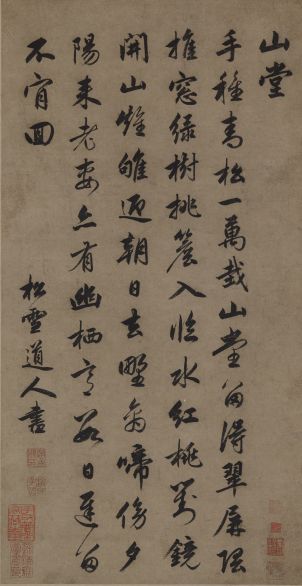 山堂
手種青松一萬栽山堂留得翠屏隈
推窓綠樹排簷入臨水紅桃對鏡
開山雉雊迎朝日去野禽啼傍夕
陽來老妻亦有幽栖意日遲留
不肎回
松雪道人書